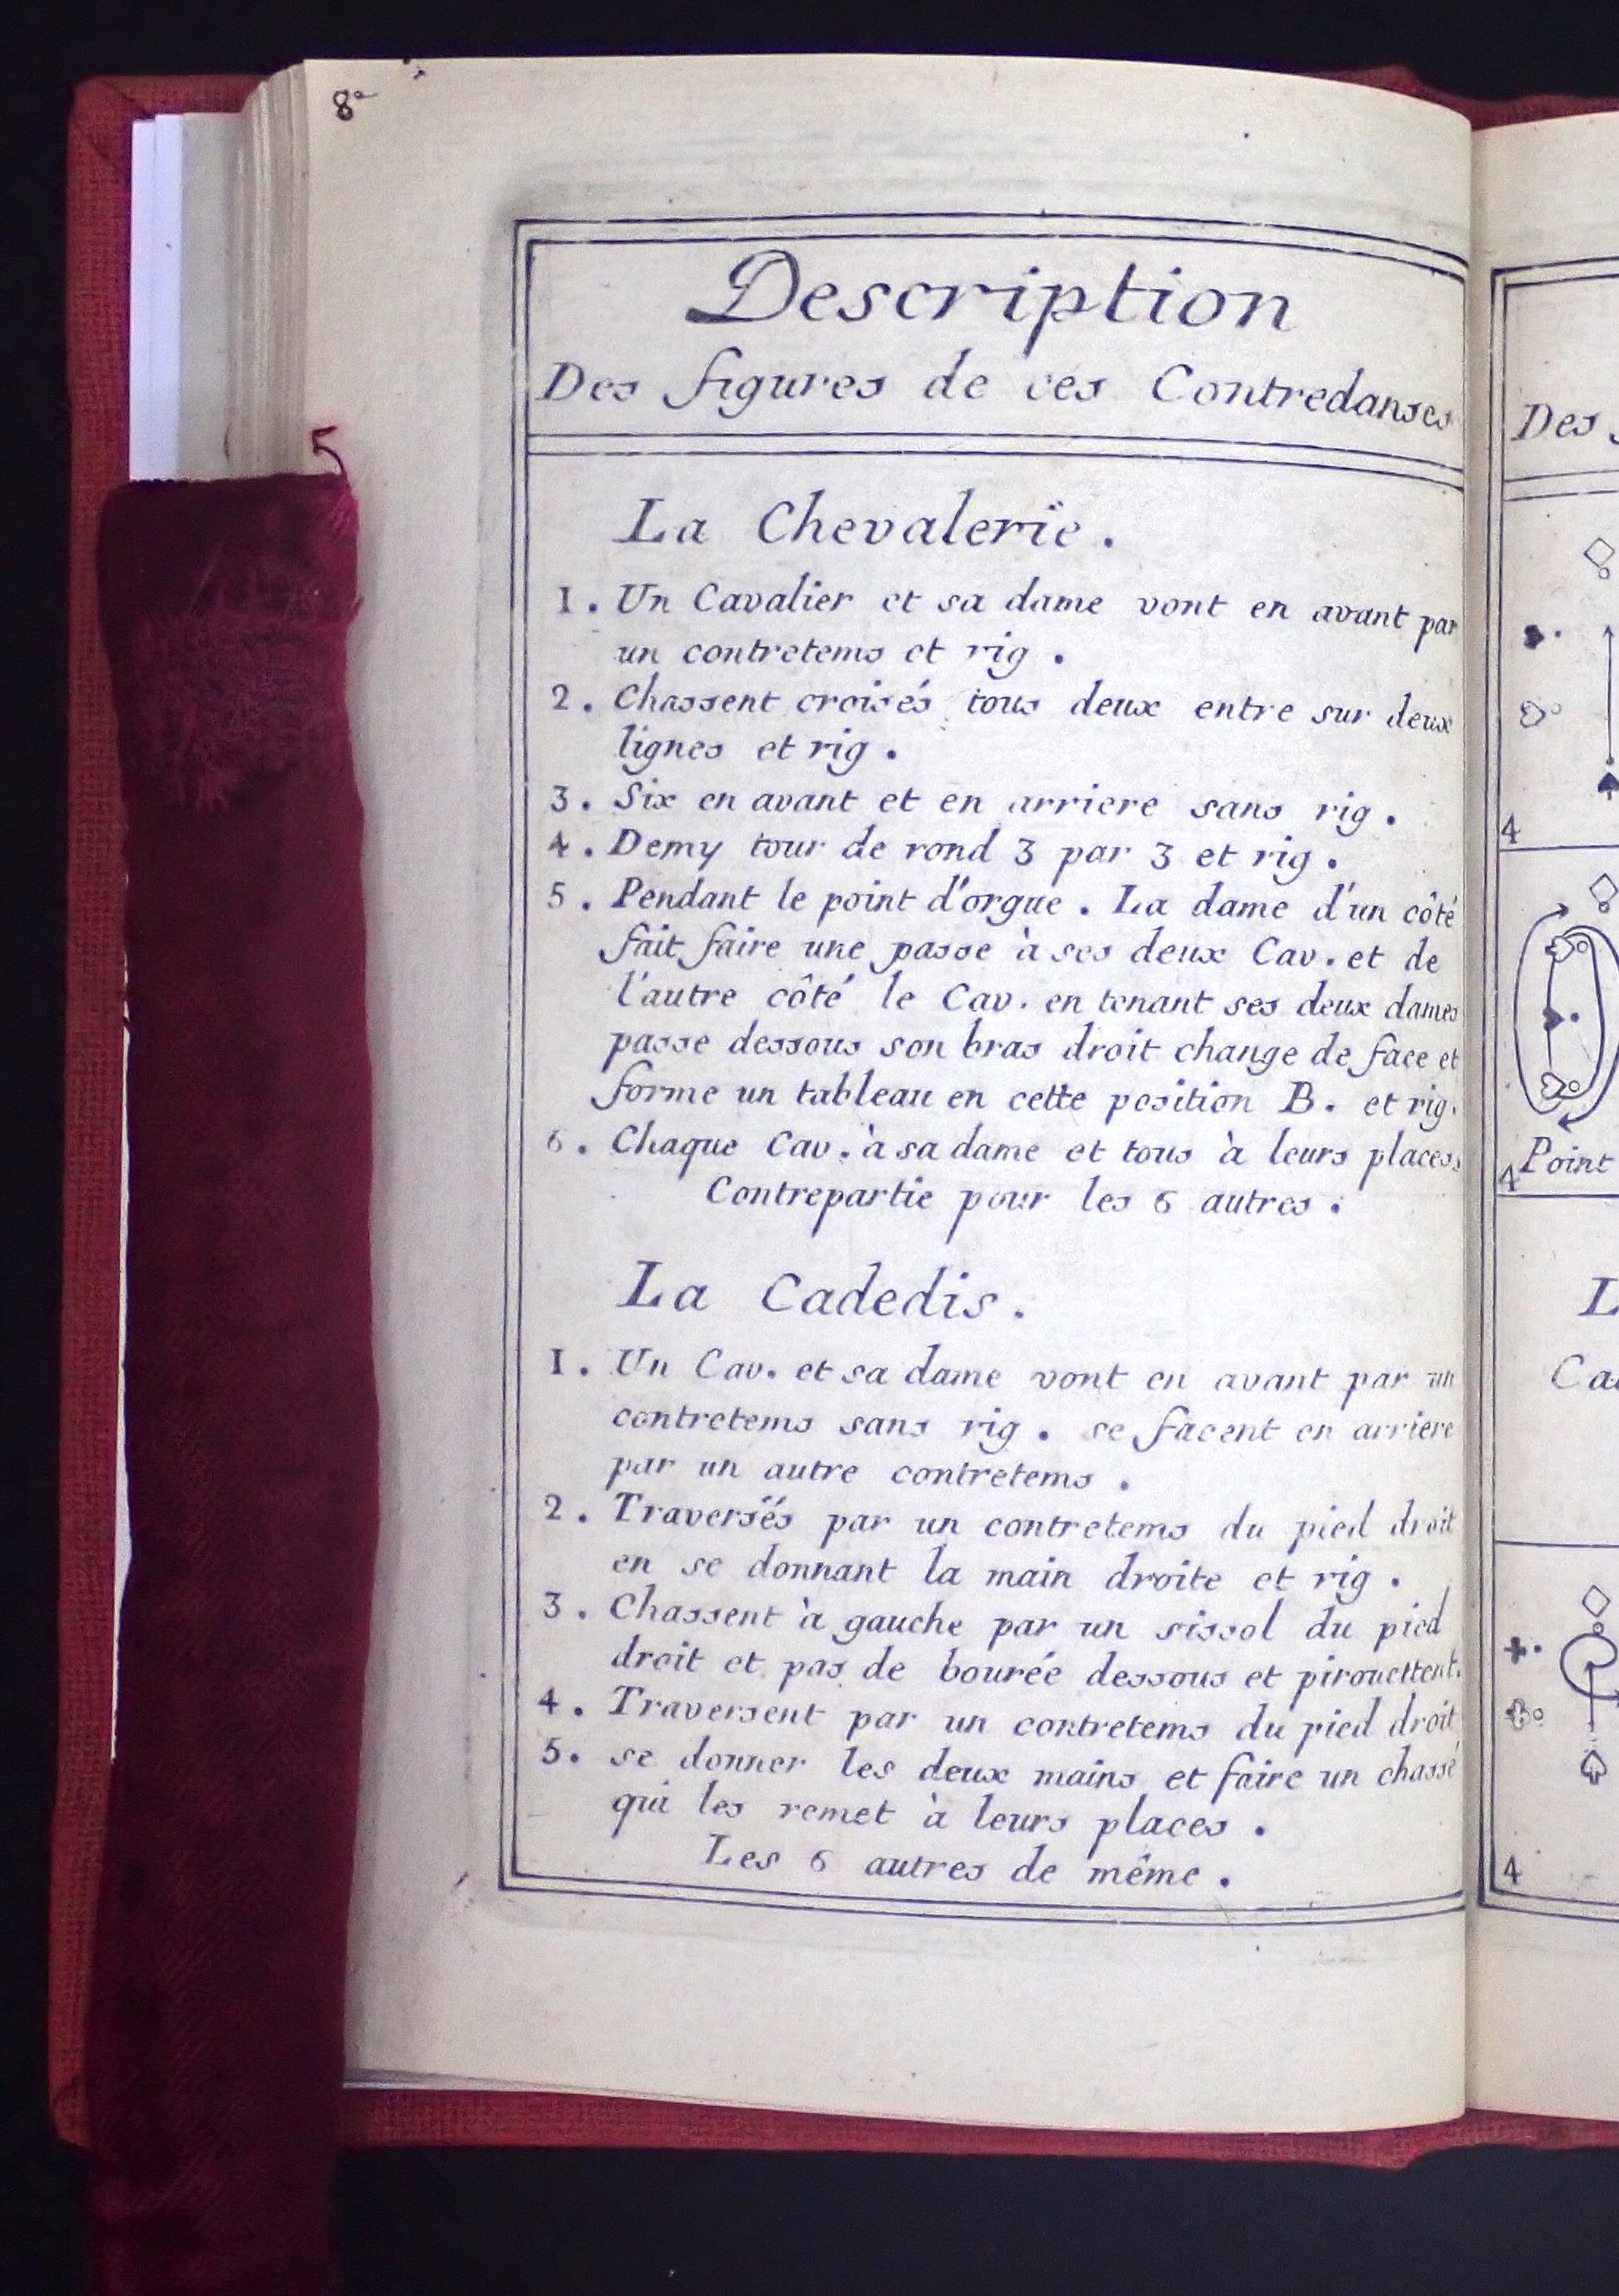 8ᵉ
Description
Des figures de ces Contredanses
La Chevalerie.
1. Un Cavalier et sa dame vont en avant par
un contretems et rig.
2. Chassent croisés tous deux entre sur deux
lignes et rig.
3. Six en avant et en arriere sans rig.
4. Demy tour de rond 3 par 3 et rig.
5. Pendant le point d'orgue. La dame d'un côté
fait faire une passe à ses deux Cav. et de
l'autre côté le Cav. en tenant ses deux dames
passe dessous son bras droit change de face et
forme un tableau en cette position B. et rig.
6. Chaque Cav. à sa dame et tous à leurs places.
Contrepartie pour les 6 autres.
La Cadedis.
1. Un Cav. et sa dame vont en avant par un
contretems sans rig. se facent en arriere
par un autre contretems.
2. Traversés par un contretems du pied droit
en se donnant la main droite et rig.
3. Chassent à gauche par un sissol du pied
droit et pas de bourée dessous et pirouettent.
4. Traversent par un contretems du pied droit
5. se donner les deux mains et faire un chassé
qui les remet à leurs places.
Les 6 autres de même.
Des
4
Point
4
L
Ca
4